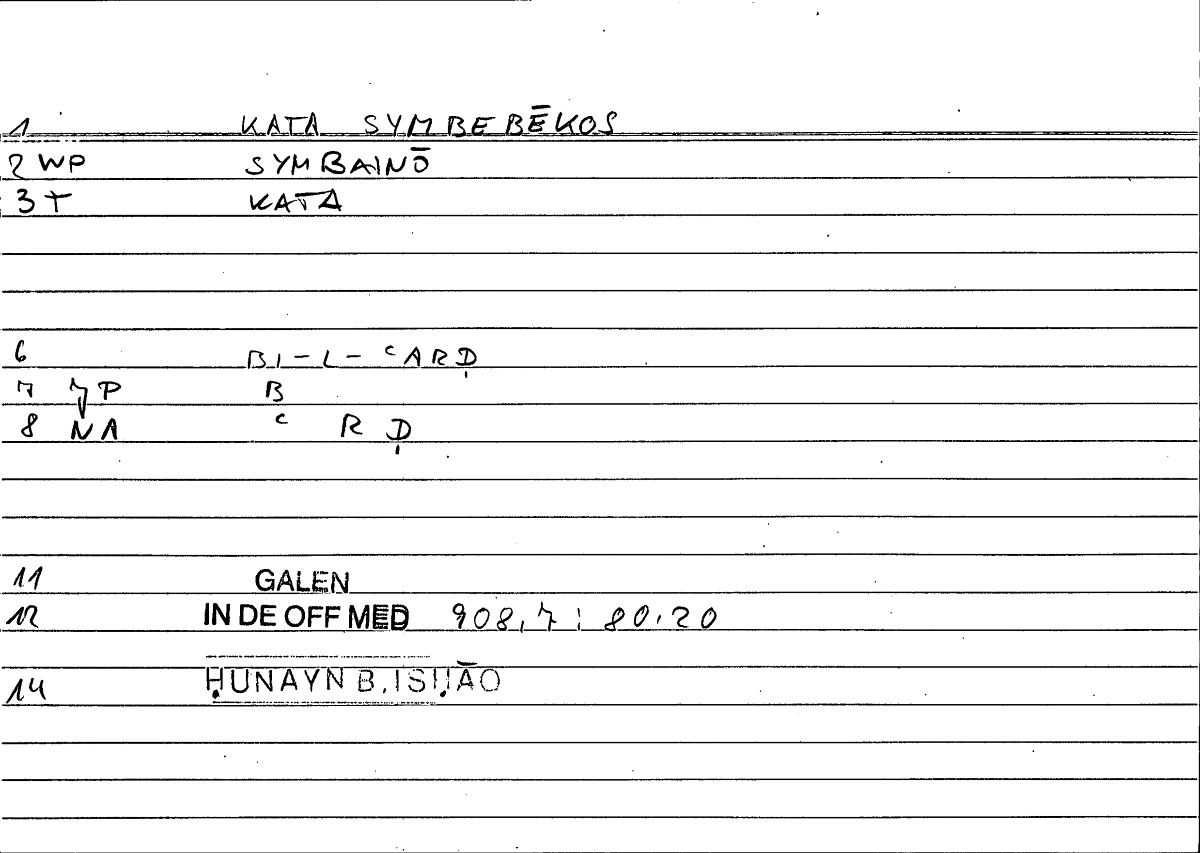 1 KATA SYMBEBĒKOS
2 WP SYMBAINŌ
3 T KATA
6 BI-L-ʿARḌ
7 P B
8 NA ʿ R Ḍ
11 GALEN
12 IN DE OFF MED 908,7 : 80.20
14 ḤUNAYN B. ISḤĀQ